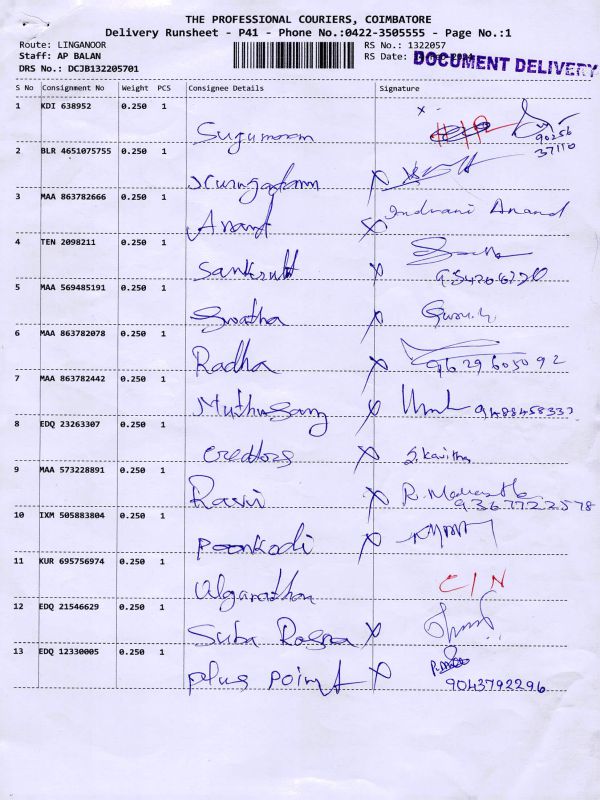 THE PROFESSIONAL COURIERS, COIMBATORE
Delivery Runsheet - P41 - Phone No.:0422-3505555 - Page No.:1
Route: LINGANOOR RS No.: 1322057
Staff: AP BALAN RS Date:
DRS No.: DCJB132205701 DOCUMENT DELIVERY
S No Consignment No Weight PCS Consignee Details Signature
1 KDI 638952 0.250 1
90256
37110
2 BLR 4651075755 0.250 1
3 MAA 863782666 0.250 1 Anand Indrani Anand
4 TEN 2098211 0.250 1
5 MAA 569485191 0.250 1 Swatha
6 MAA 863782078 0.250 1 Radha 9629605092
7 MAA 863782442 0.250 1 Muthusamy
8 EDQ 23263307 0.250 1 creators S. Kavitha
9 MAA 573228891 0.250 1 Ravi
9367722578
10 IXM 505883804 0.250 1 Poonkodi
11 KUR 695756974 0.250 1 C/N
12 EDQ 21546629 0.250 1 Suba
13 EDQ 12330005 0.250 1 plus point
9043792296